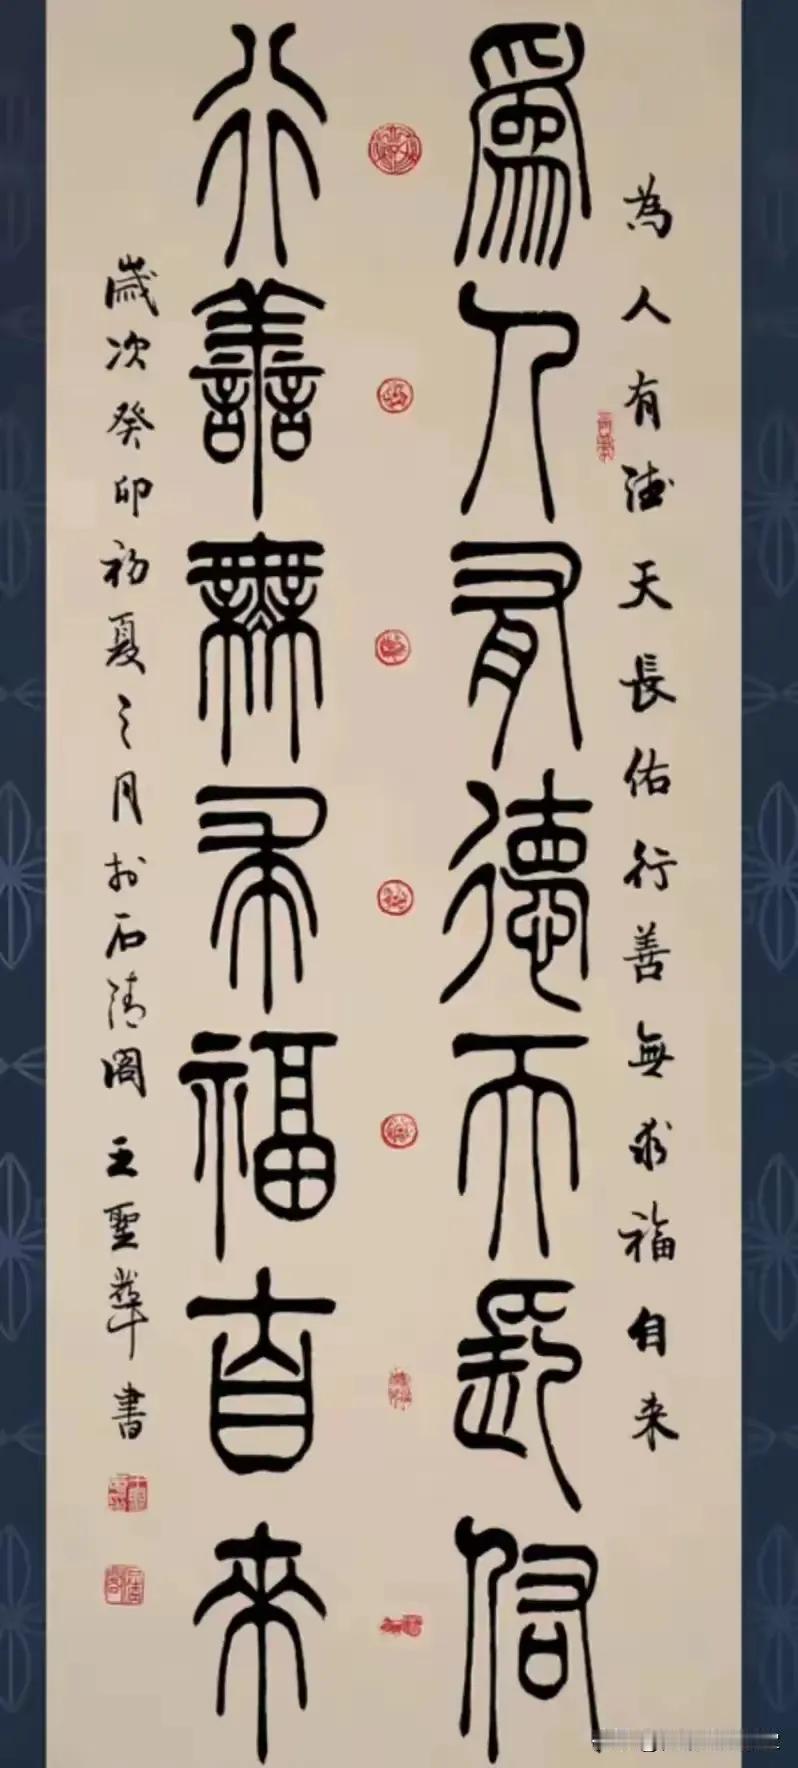 為人有德天長佑行善無求福自来
爲人有德天長佑
行善無求福自來
歲次癸卯初夏之月於石清閣王聖書